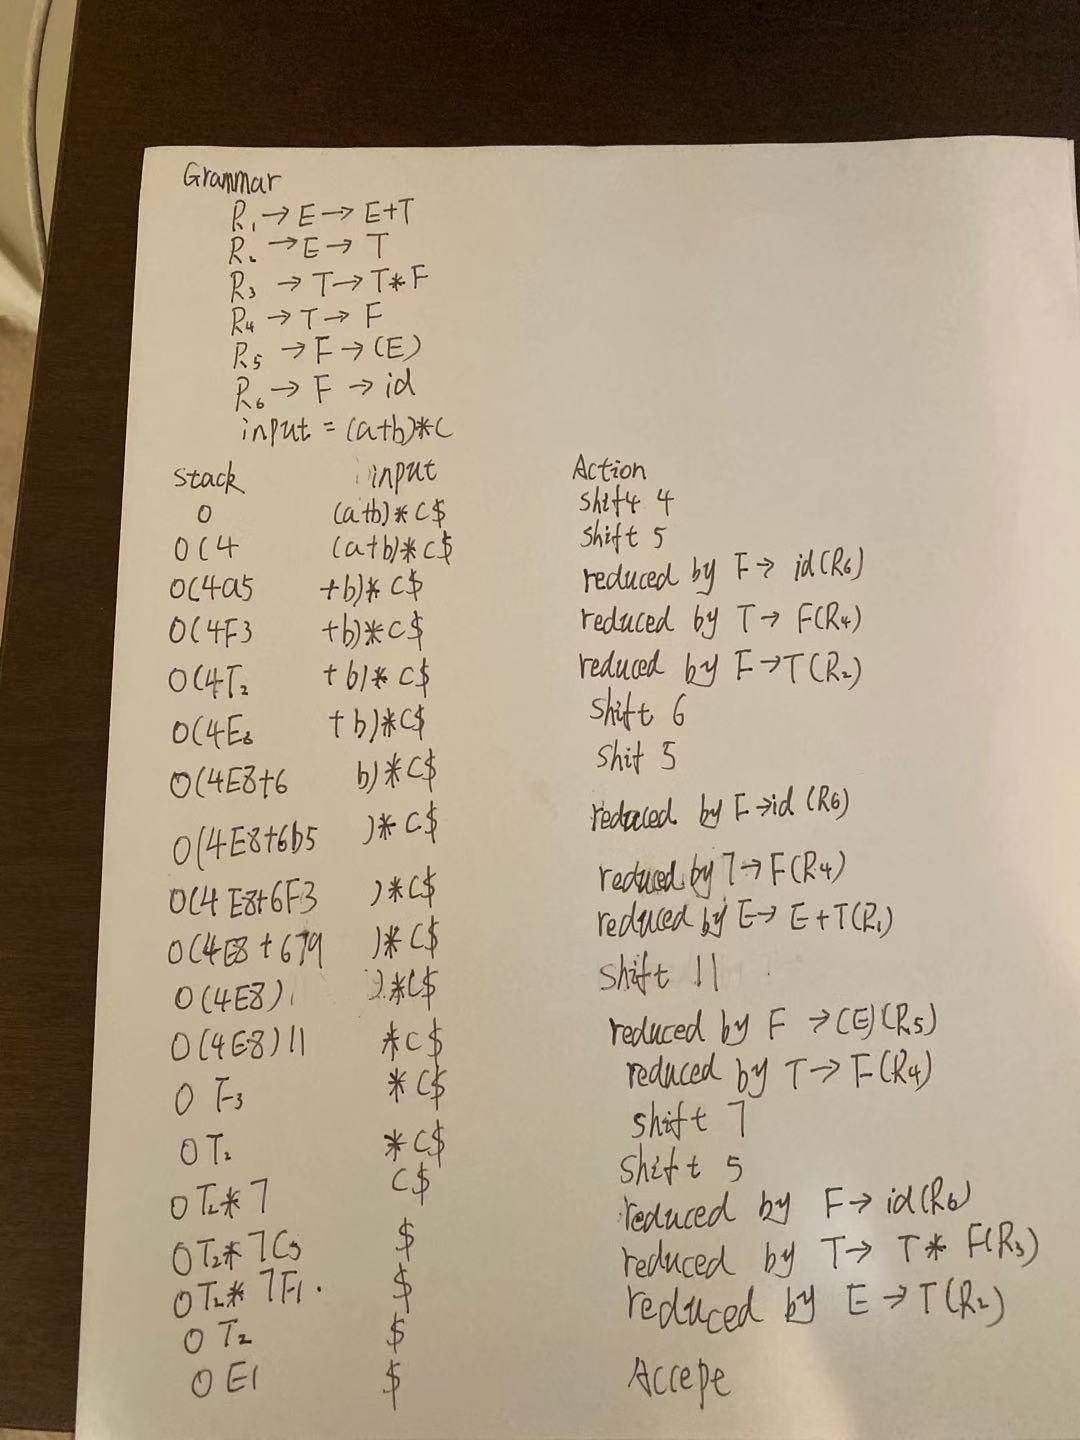 Grammar
R₁ → E → E+T
R₂ → E → T
R₃ → T → T*F
R₄ → T → F
R₅ → F → (E)
R₆ → F → id
input = (a+b)*C
stack input Action
0 (a+b)*C$ shift 4
0(4 (a+b)*C$ shift 5
0(4a5 +b)*C$ reduced by F → id(R₆)
0(4F3 +b)*C$ reduced by T → F(R₄)
0(4T₂ +b)*C$ reduced by F → T(R₂)
0(4E₈ +b)*C$ shift 6
0(4E8+6 b)*C$ shit 5
0(4E8+6b5 )*C$ reduced by F → id (R6)
0(4E8+6F3 )*C$ reduced by T → F(R4)
0(4E8+6T9 )*C$ reduced by E → E+T(R₁)
0(4E8) )*C$ shift 11
0(4E8)11 *C$ reduced by F → (E)(R₅)
0 F₃ *C$ reduced by T → F(R4)
0 T₂ *C$ shift 7
0 T₂*7 C$ shift 5
0 T₂*7C₅ $ reduced by F → id(R₆)
0 T₂*7F1. $ reduced by T → T* F(R₃)
0 T₂ $ reduced by E → T(R₂)
0 E1 $ Accepe